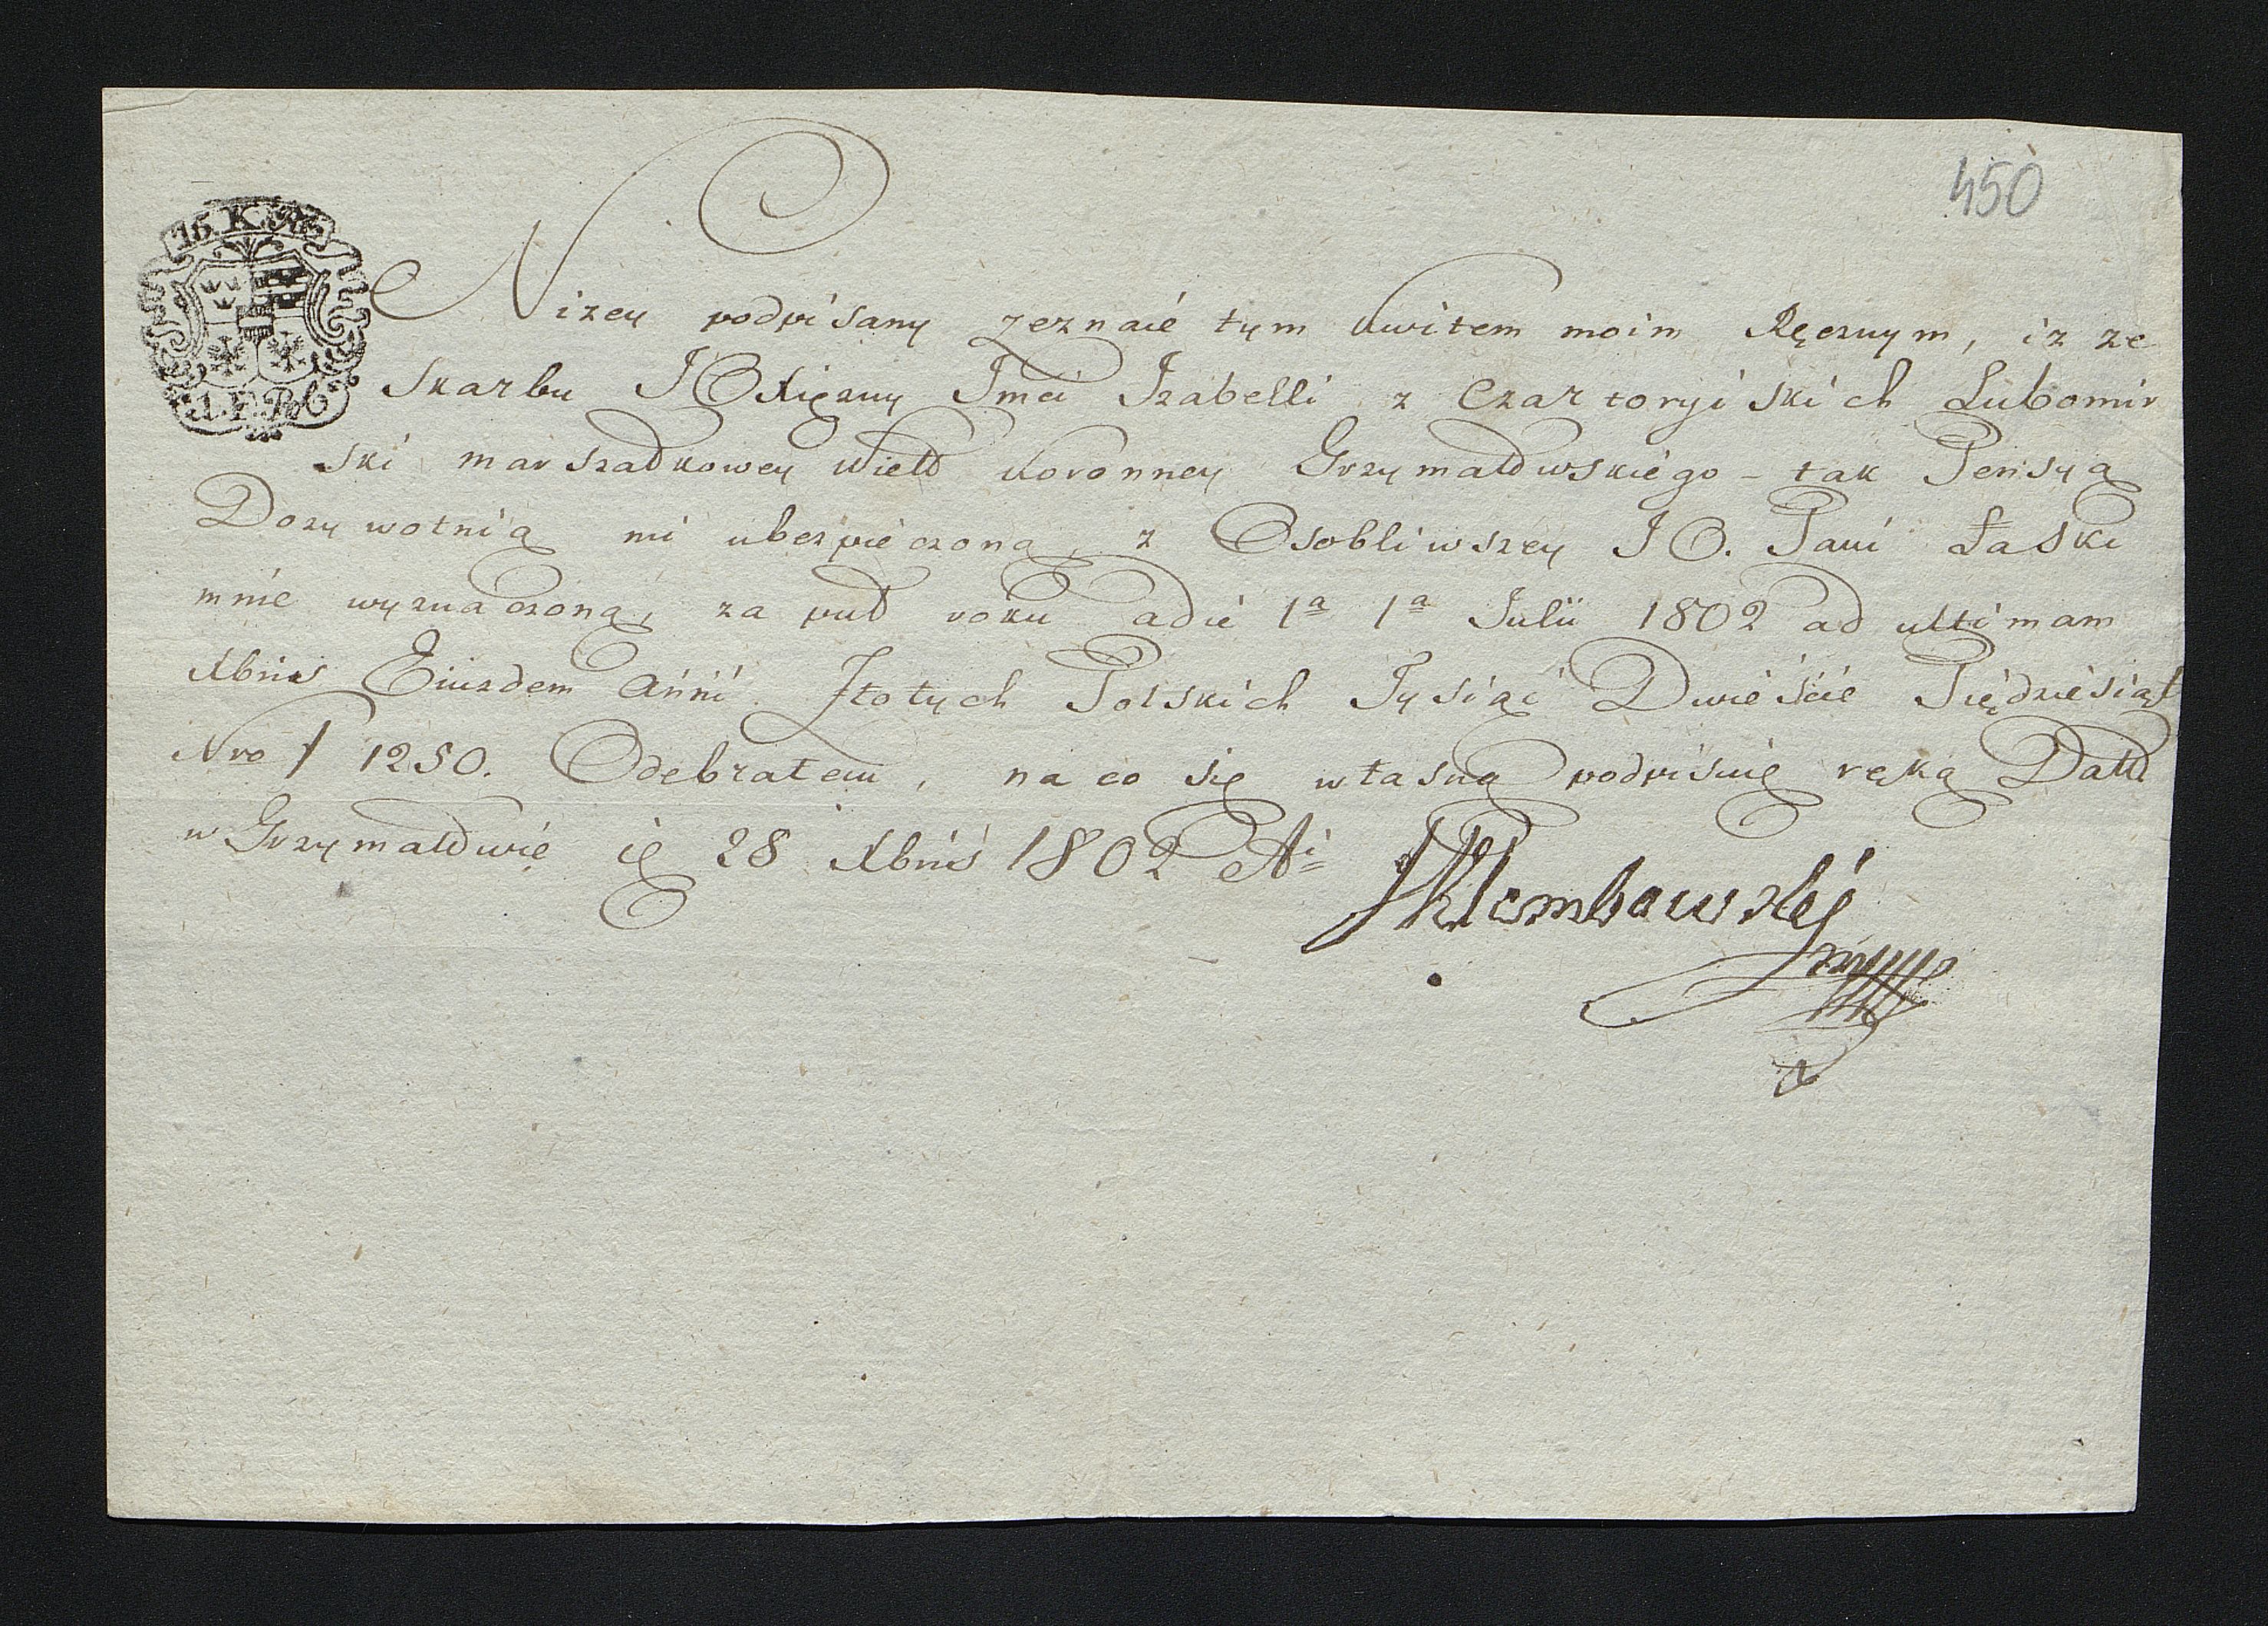 450
15. K.
Nizey podpisany zeznaie tym kwitem moim Ręcznym, iz ze
Skarbu J O Xięzny Jmci Izabelli z Czartoryiskich Lubomir
ski marszałkowey Wielł koronney Grzymałowskiego - tak Pensyą
Dozywotnią mi ubezpieczoną, z Osobliwszey J O. Pani Łaski
mnie wyznaczoną, za puł roku adie 1a 1a Julii 1802 ad ultimam
Xbris Eiuzdem Anni Złotych Polskich Tysiąc Dwieście Piędziesiąt
Nro f 1250. Odebrałem, na co się własną podpisuię ręką Datt
w Grzymałowie ię 28 Xbris 1802 Ai
JKlembowskj